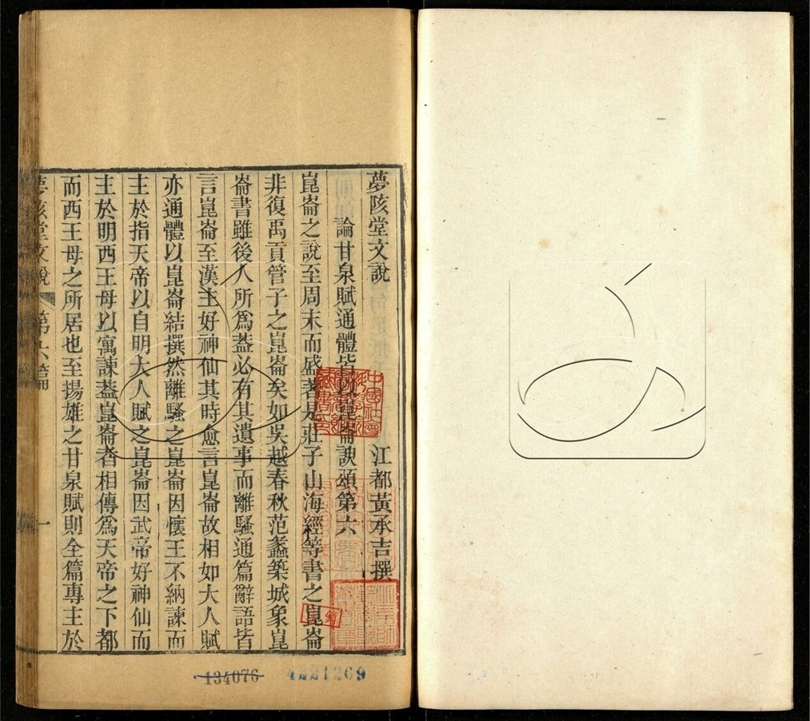 夢陔堂文說
江都黃承吉撰
論甘泉賦通體皆以崑崙諛頌第六
崑崙之說至周末而盛著是莊子山海經等書之崑崙
非復禹貢管子之崑崙矣如吳越春秋范蠡築城象崑
崙書雖後人所爲葢必有其遺事而離騷通篇辭語皆
言崑崙至漢主好神仙其時愈言崑崙故相如大人賦
亦通體以崑崙結撰然離騷之崑崙因懷王不納諫而
主於指天帝以自明大人賦之崑崙因武帝好神仙而
主於明西王母以寓諫葢崑崙者相傳爲天帝之下都
而西王母之所居也至揚雄之甘泉賦則全篇專主於
夢陔堂文說
第六篇
一
134076
4221269